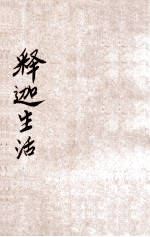 释迦生活